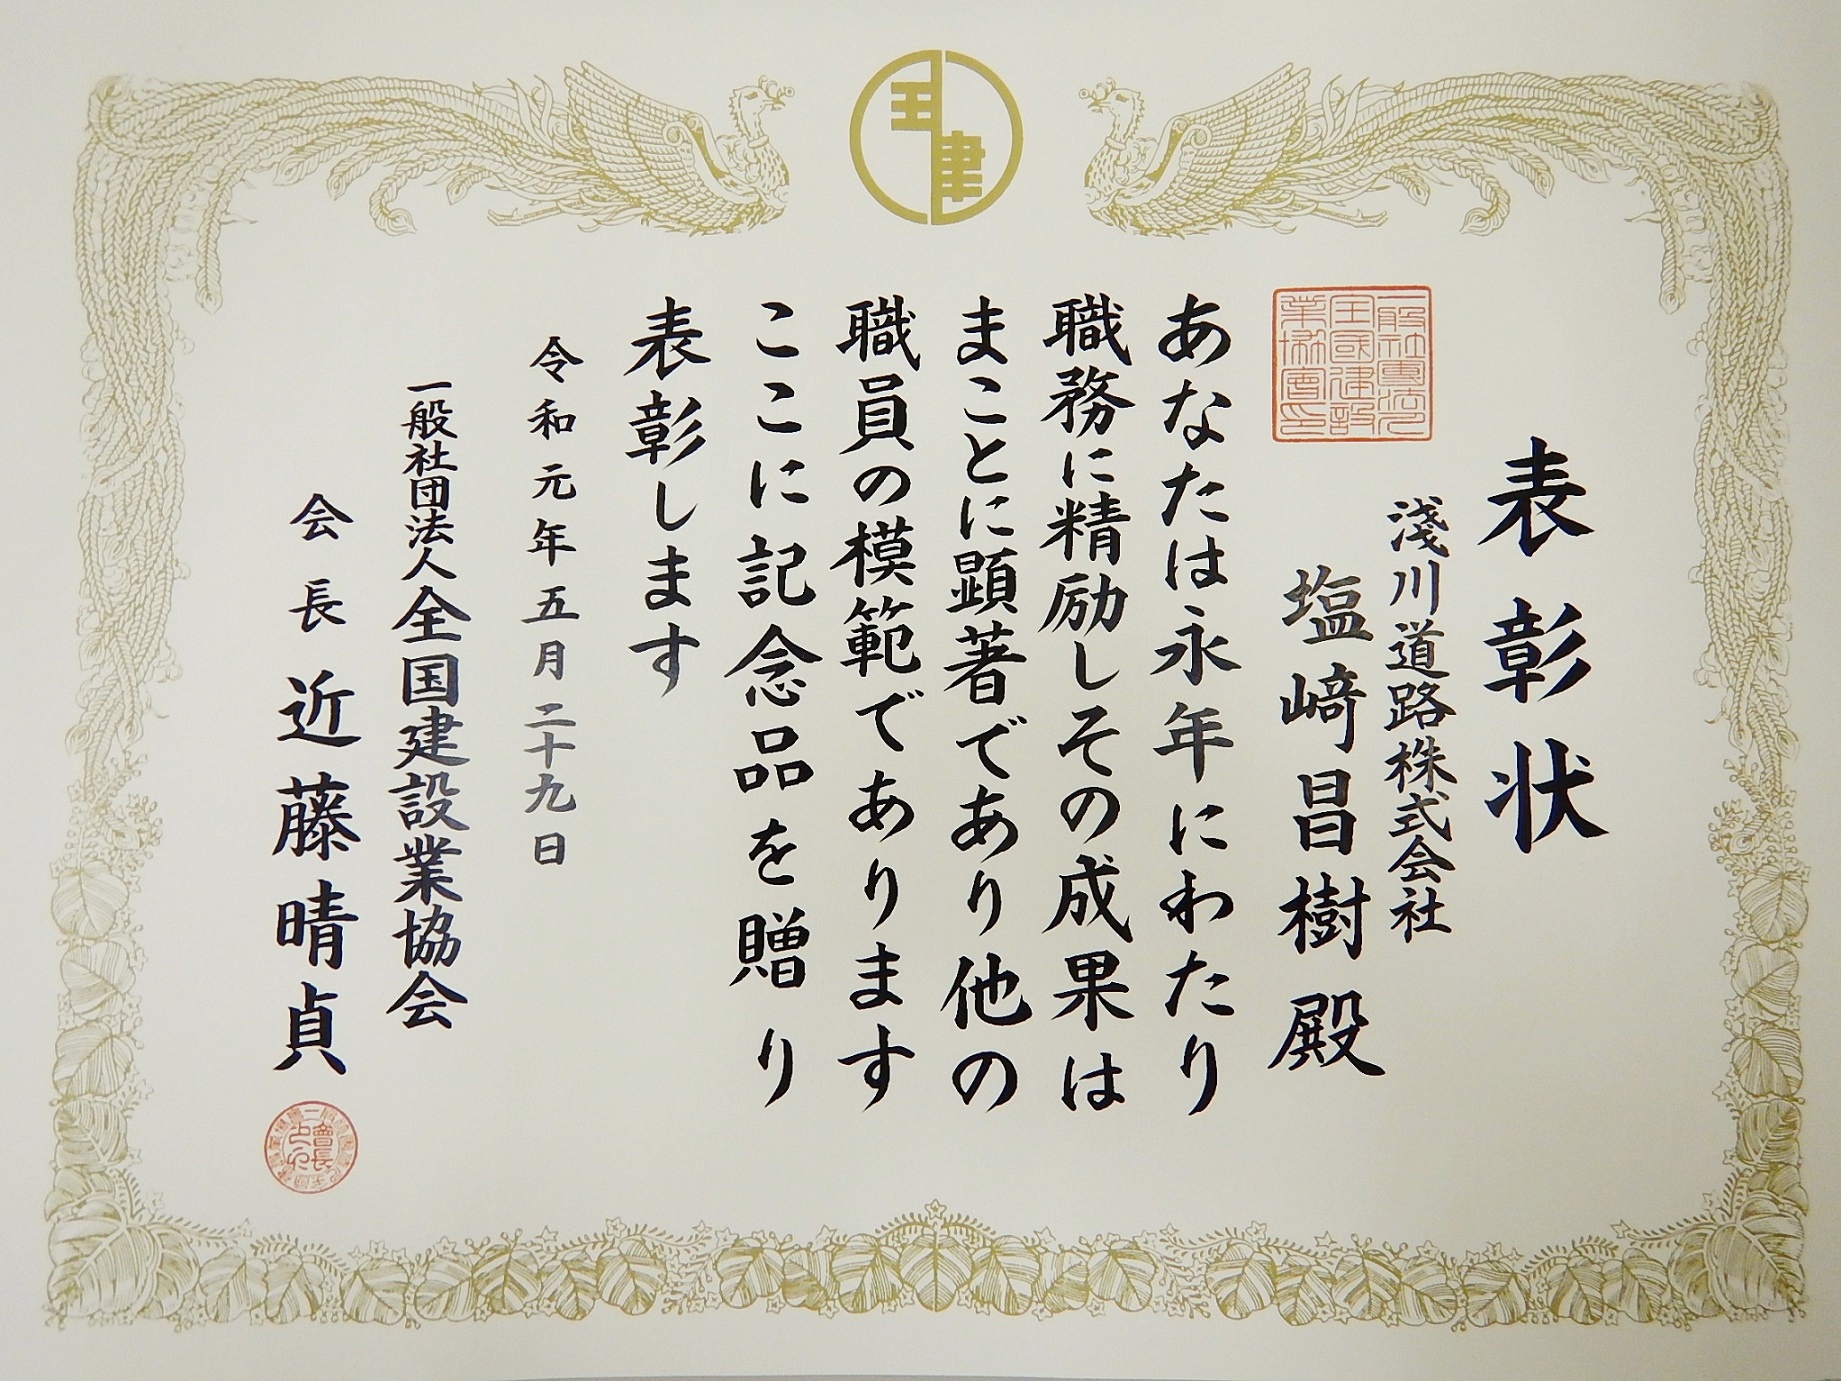 表彰状
淺川道路株式会社
塩﨑昌樹殿
あなたは永年にわたり
職務に精励しその成果は
まことに顕著であり他の
職員の模範であります
ここに記念品を贈り
表彰します
令和元年五月二十九日
一般社団法人全国建設業協会
会長近藤晴貞
一般社團法人
全國建設
業協會印